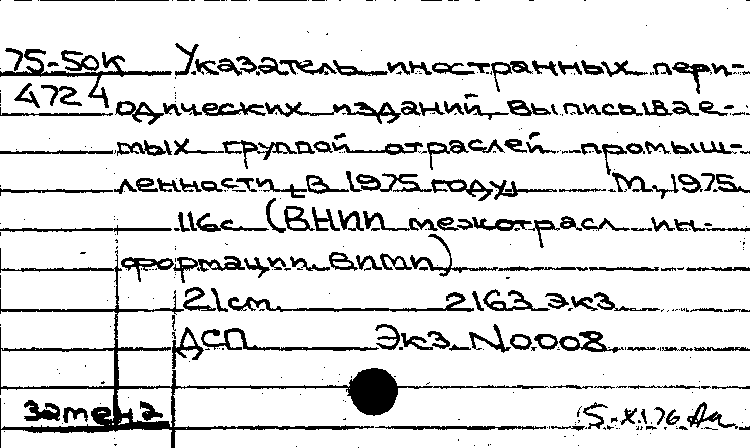 75-50к Указатель иностранных пери-
4724 одических изданий, выписывае-
мых группой отраслей промыш-
ленности [в 1975 году] М., 1975.
116с. (ВНИИ межотрасл. ин-
формации. ВИМИ)
21см. 2163 экз.
ДСП. Экз. N0008.
замена
15-XI.76